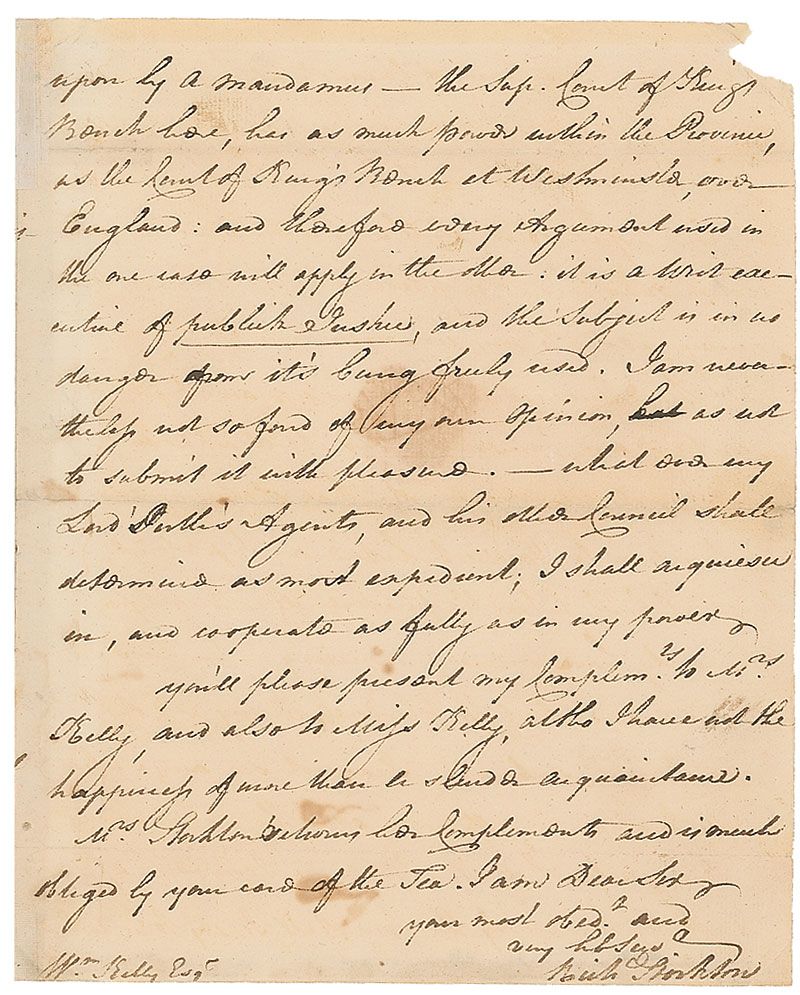 upon by a mandamus — the Sup. Court of King's
Bench here, has as much power within the Province,
as the Court of King's Bench at Westminster, over
England: and therefore every Argument used in
the one case will apply in the other: it is a Writ exe-
cutive of publick Justice, and the Subject is in no
danger from it's being freely used. I am never-
theless not so fond of my own Opinion, as not
to submit it with pleasure. — what ever my
Lord Agents, and his other Council shall
determine as most expedient; I shall acquiesce
in, and cooperate as fully as in my power
you'll please present my Complem.ts to Mrs.
Kelly, and also to Miss Kelly, altho I have not the
happiness of more than a slender acquaintance.
Mrs. Stockton returns her Complements and is much
obliged by your care of the Tea. I am Dear Sir
your most obed.t and
very hble Serv
Wm. Kelly Esqr Rich Stockton